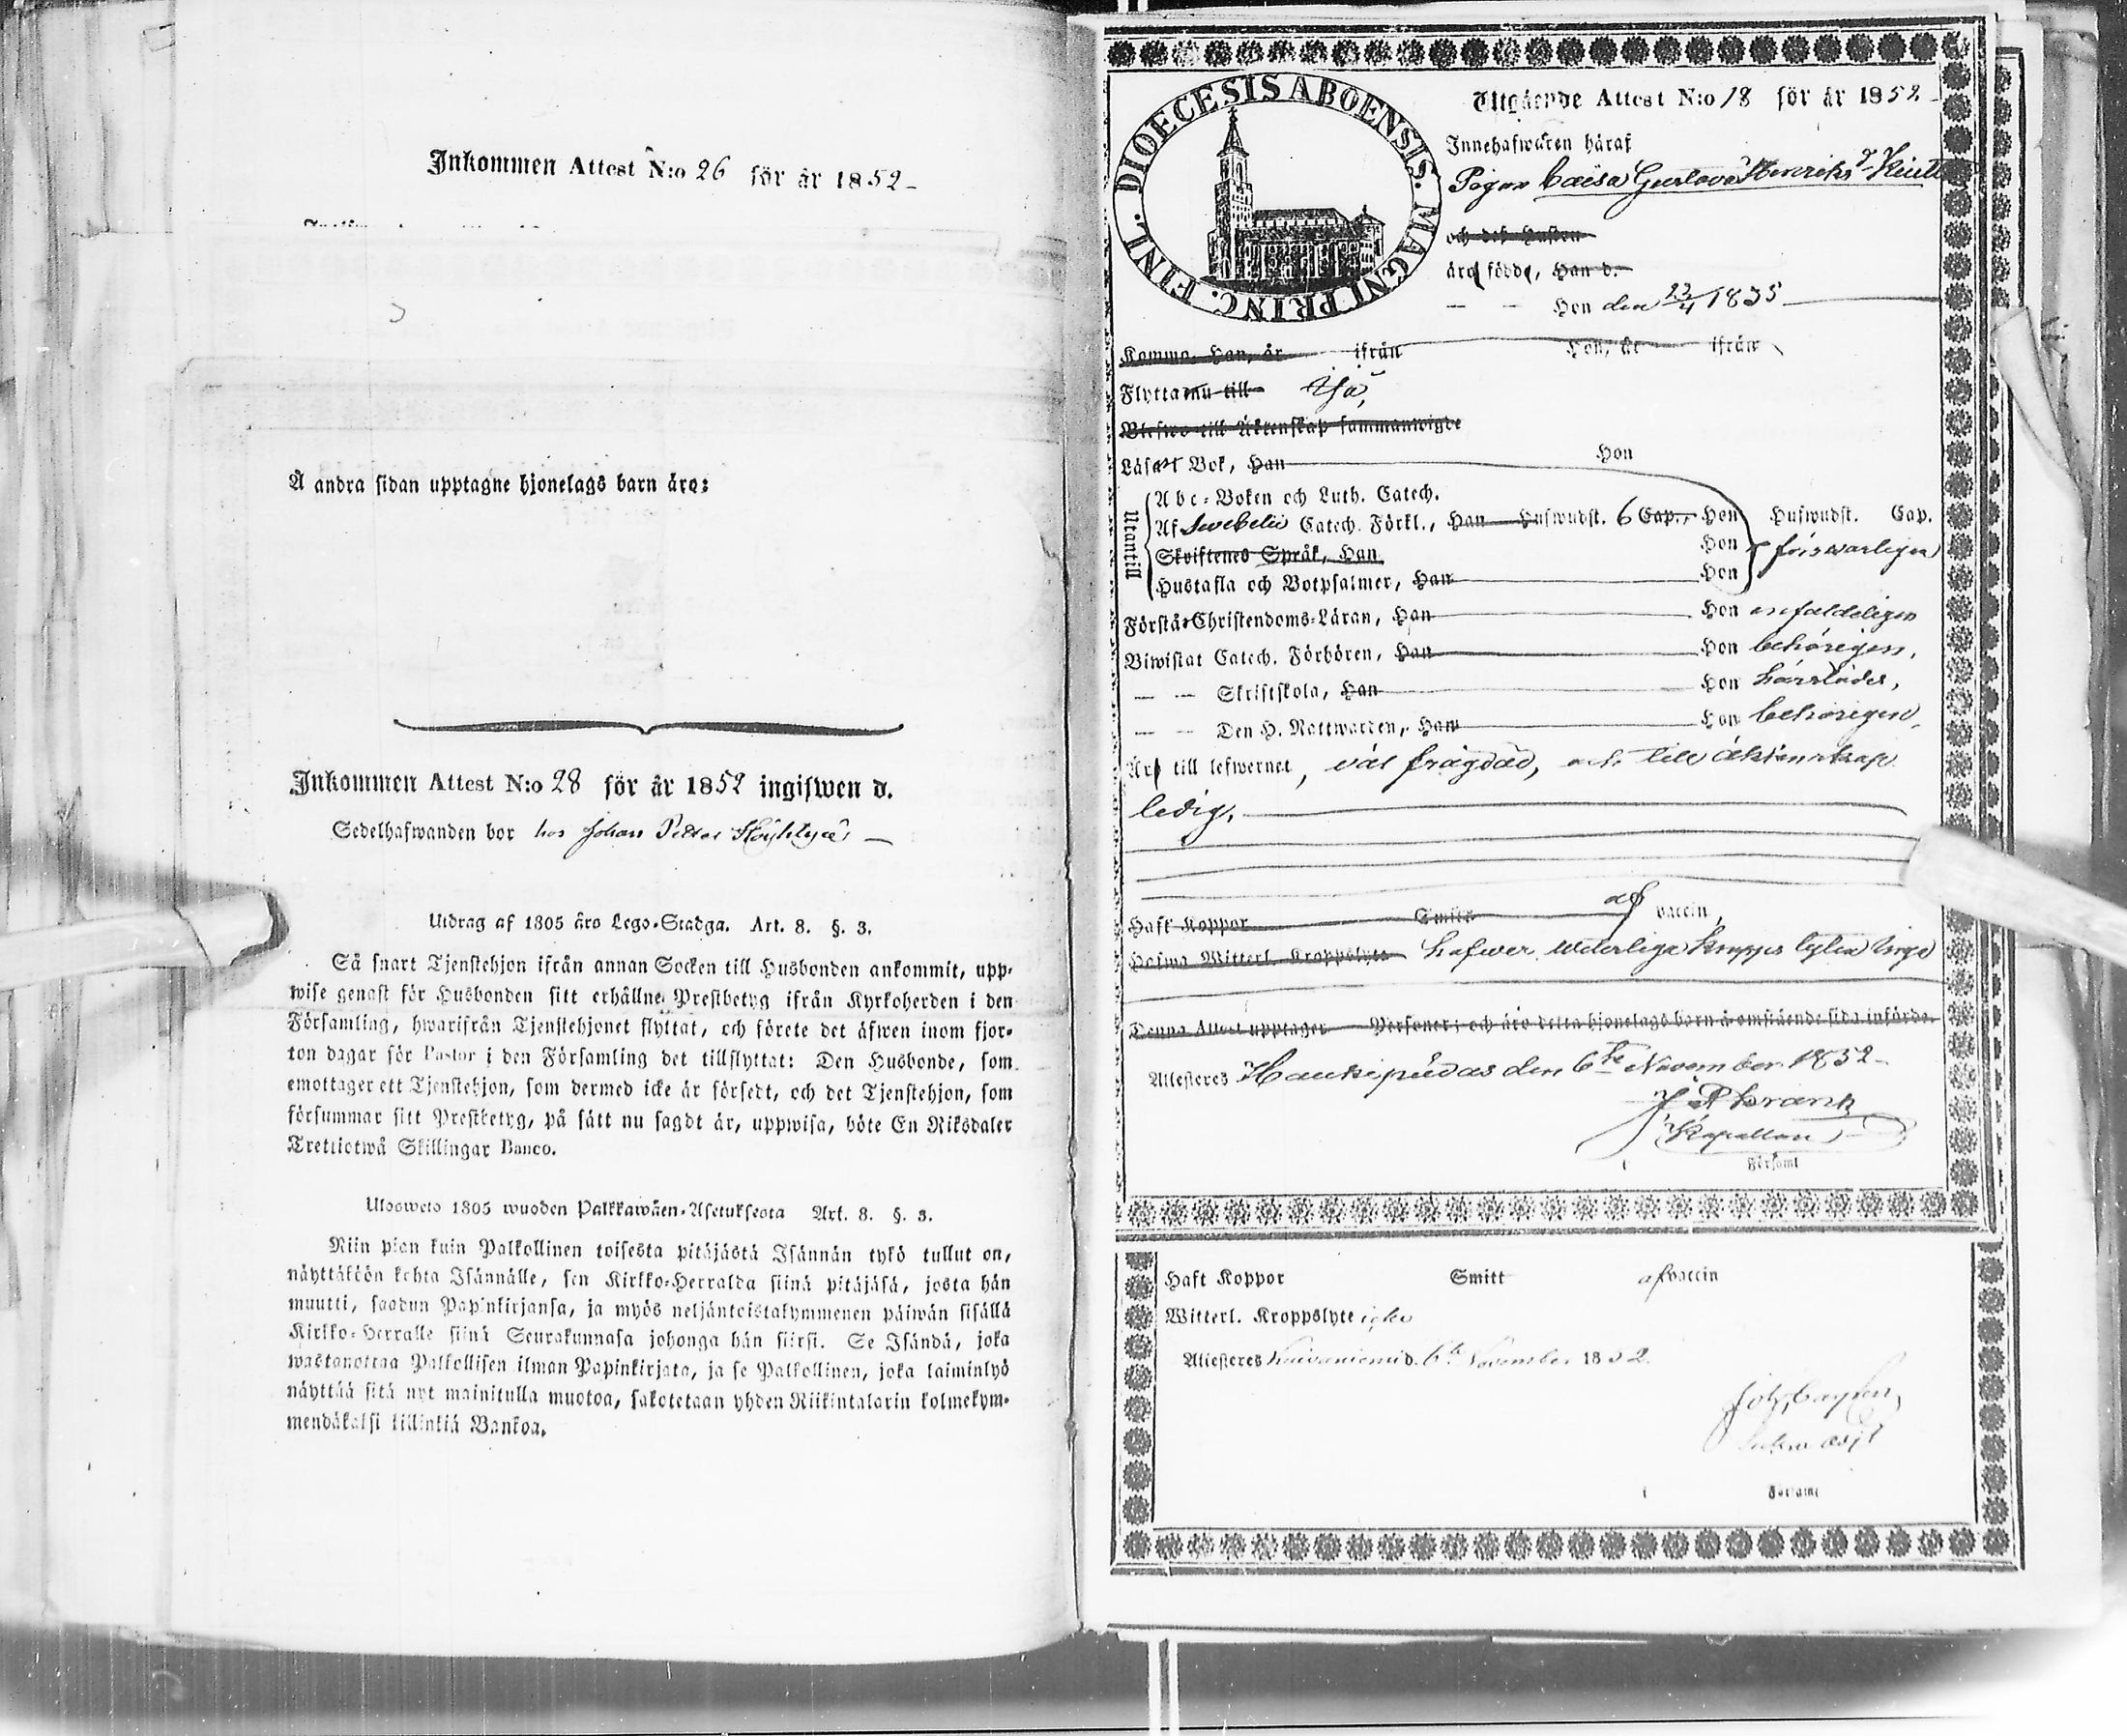 Inkommen Attest N:o 26 för år 1852
Å andra sidan upptagne hjonelags barn äro:
Inkommen Attest N:o 28 för år 1852 ingifwen d.
Sedelhafwanden bor hos Johan Petter
Utdrag af 1805 års Lego-Stadga. Art. 8. §. 3.
Så snart Tjenstehjon ifrån annan Socken till Husbonden ankommit, upp-
wise genast för Husbonden sitt erhållne Prestbetyg ifrån Kyrkoherden i den
Församling, hwarifrån Tjenstehjonet flyttat, och förete det äfwen inom fjor-
ton dagar för Pastor i den Församling det tillflyttat: Den Husbonde, som
emottager ett Tjenstehjon, som dermed icke är försedt, och det Tjenstehjon, som
försummar sitt Prestbetyg, på sätt nu sagdt är, uppwisa, böte En Riksdaler
Trettiotwå Skillingar Banco.
Ulosweto 1805 wuoden Palkkawäen-Asetuksesta Art. 8. §. 3.
Niin pian kuin Palkollinen toisesta pitäjästä Isännän tykö tullut on,
näyttäköön kohta Isännälle, sen Kirkko-Herralda siinä pitäjäsä, josta hän
muutti, saadun Papinkirjansa, ja myös neljäntoistakymmenen päiwän sisällä
Kirkko-Herralle siinä Seurakunnasa johonga hän siirsi. Se Isändä, joka
wastanottaa Palkollisen ilman Papinkirjata, ja se Palkollinen, joka laiminlyö
näyttää sitä nyt mainitulla muotoa, sakotetaan yhden Riikintalarin kolmekym-
mendäkaksi killinkiä Bankoa.
DIOECESIS ABOENSIS. MAGNI PRINC. FINL.
Utgående Attest N:o 18 för år 1852
Innehafwaren häraf
Pigan Caisa Gustava Henriks d.
och dess Hustru
äro födde, Han d.
— — Hon den 23/4 1835
Komma, Han, år ifrån Hon, år ifrån
Flytta nu till Ijo,
Blefwo till Äktenskap sammanwigde
Läsa i Bok, Han Hon
Utantill
Abc-Boken och Luth. Catech.
Af Svebelii Catech. Förkl., Han Hufwudst. 6 Cap., Hon Hufwudst. Cap.
Skriftenes Språk, Han Hon försvarligen
Hustafla och Botpsalmer, Han Hon
Förstår Christendoms-Läran, Han Hon enfaldeligen
Biwistat Catech. Förhören, Han Hon behörigen,
— — Skriftskola, Han Hon härstädes,
— — Den H. Nattwarden, Han Hon behörigen,
Är till lefwernet, väl frägdad, och till äktenskap
ledig.
Haft Koppor Smitt af vaccin,
Hafwa Witterl. Kroppslyte hafver veterliga kropps lyten inga
Denna Attest upptager Personer; och äro detta hjonelags barn å omstående sida införde.
Attesteres Haukipudas den 6te November 1852
Kapellan
i Församl
Haft Koppor Smitt af vaccin
Witterl. Kroppslyte icke
Attesteres Kuivaniemi d. 6te November 1852
i Församl